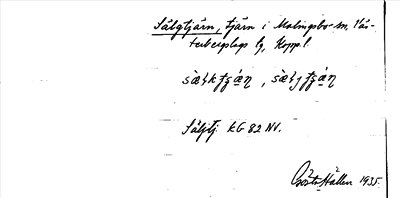 Sälgtjärn, tjärn i Malingsbo sn, Väs-
terbergslags lg, Kopp. l.
sæ̀ɫktʂǽn, sæ̀ɫjtʂǽn
Säljtj. kG 82 NV.
Gösta Hallén 1935.